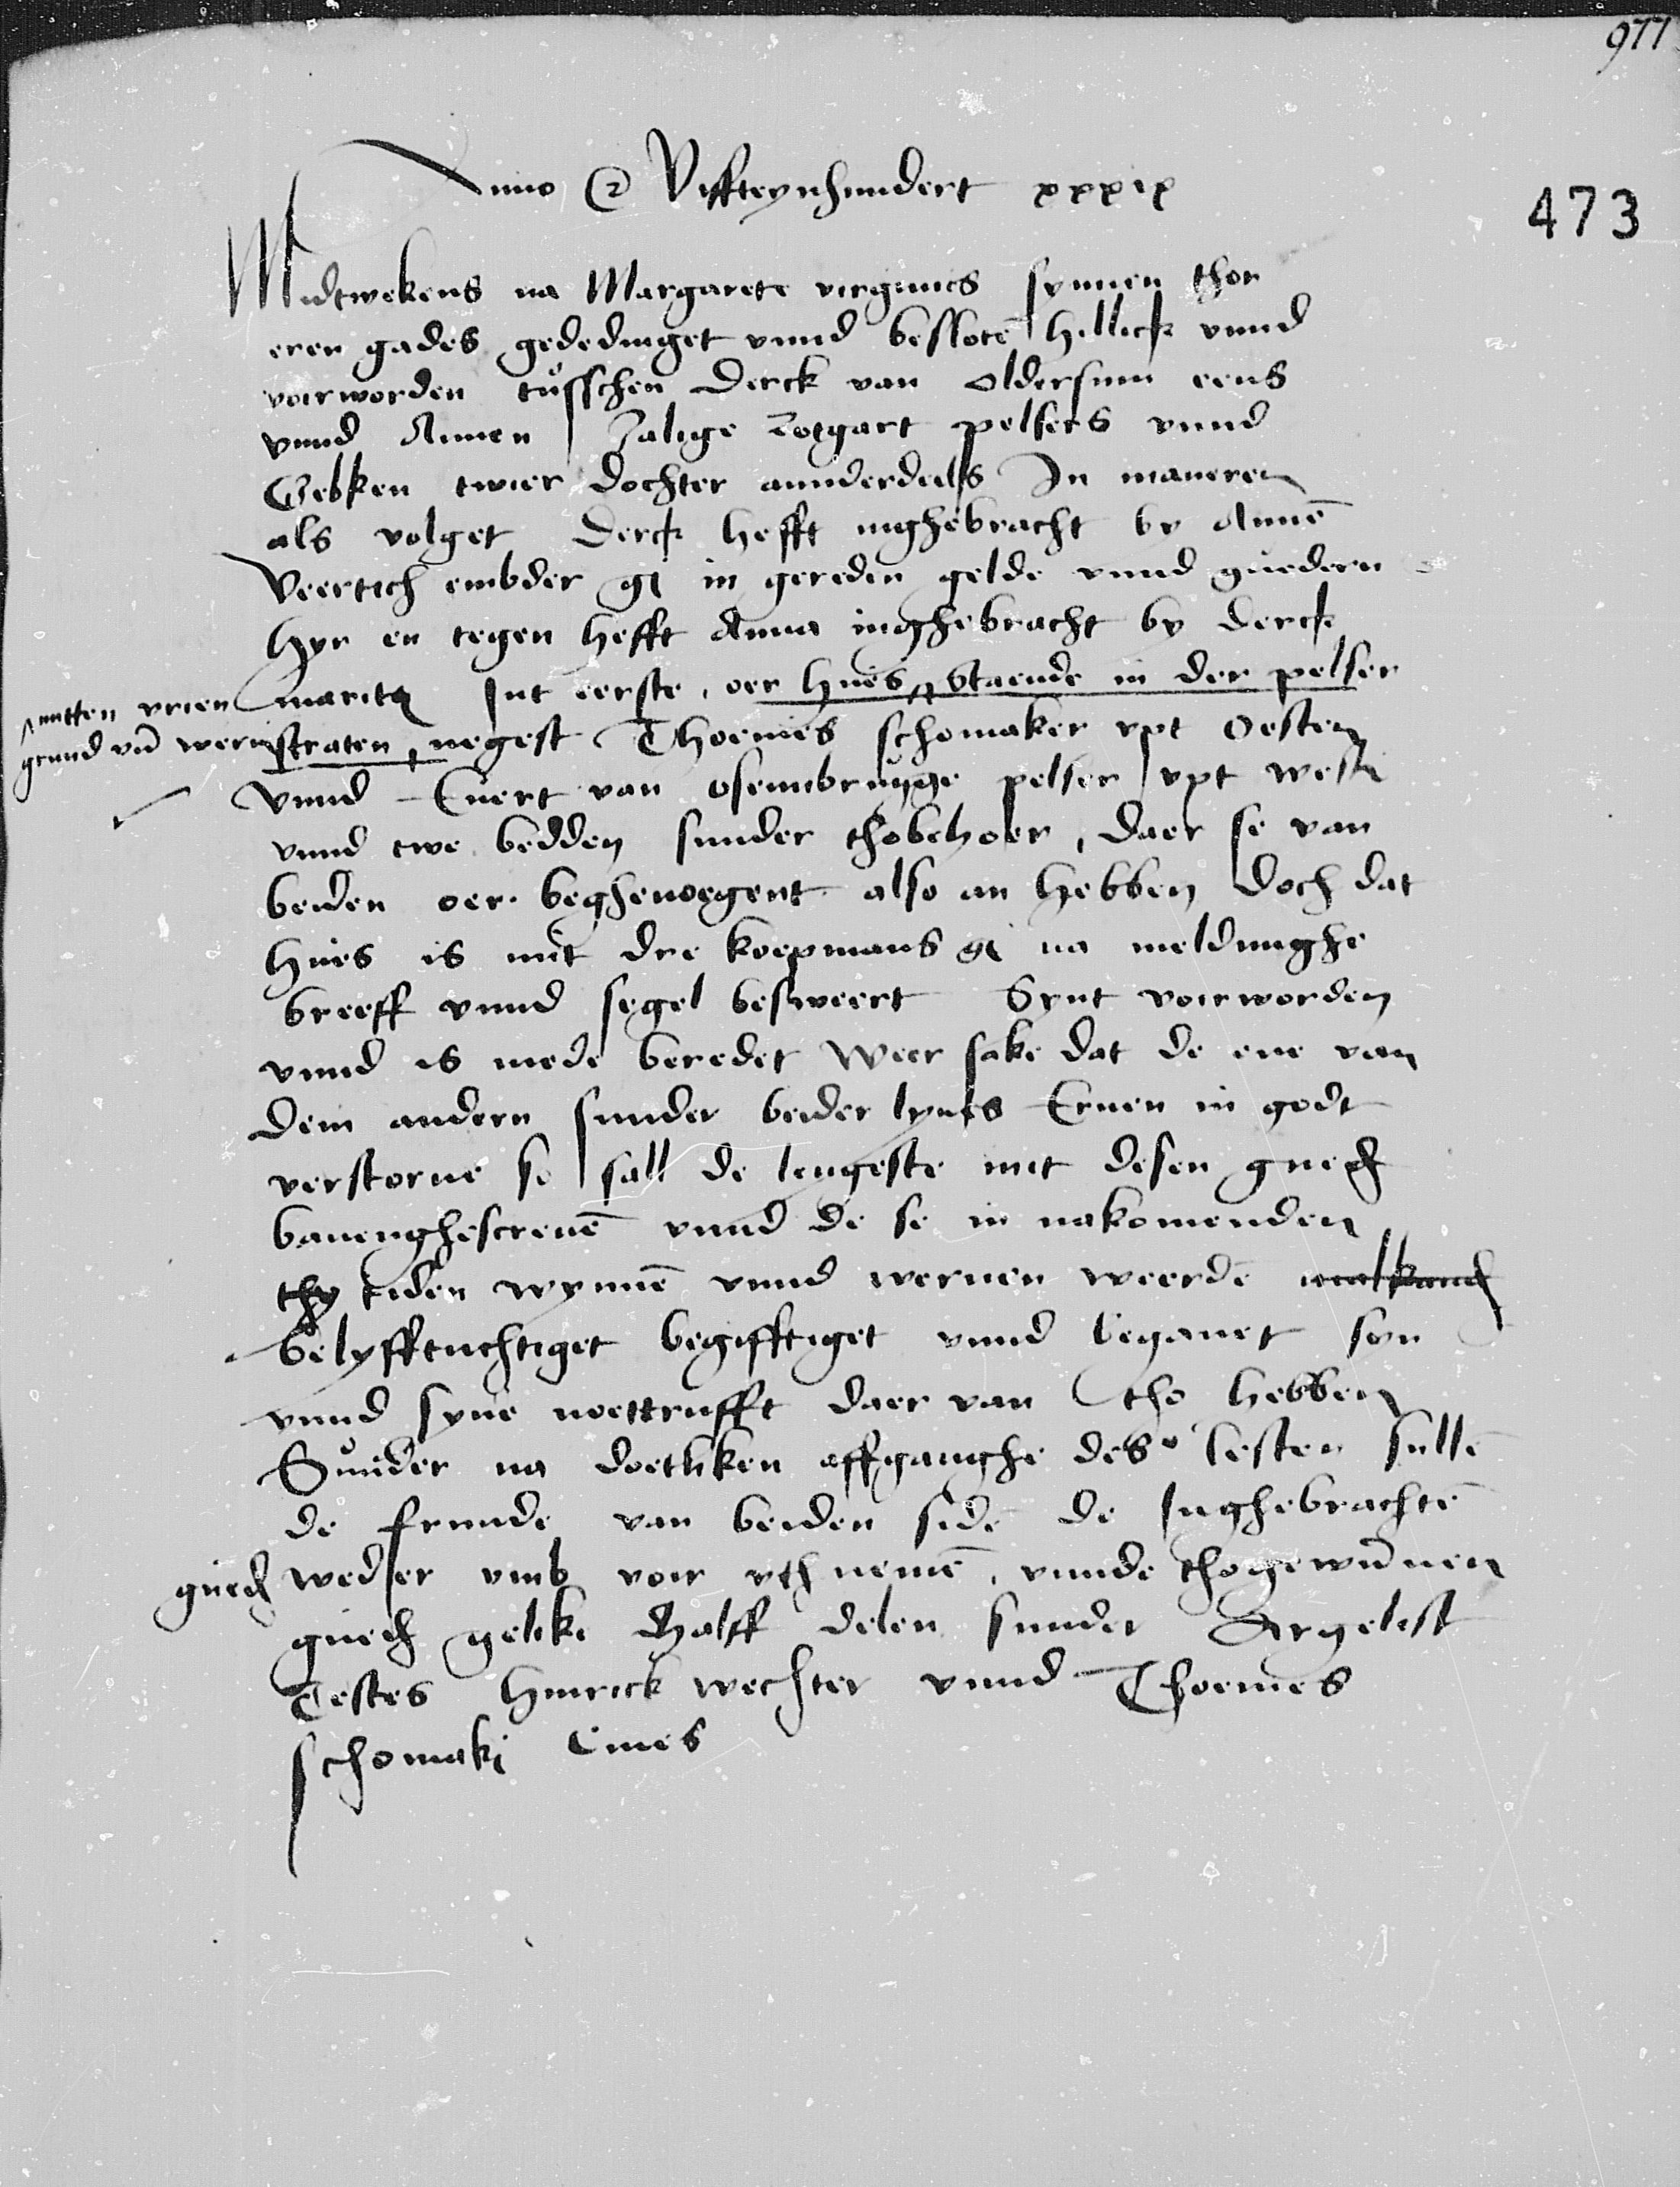 977
473
Anno &c Viffteynhundert xxxix
Midtwekens na Margarete virginis synnen thor
eren gades gededinget vnnd beslotē hillick vnnd
voirworden tůsschen Derck van Oldersum eens
vnnd Annen Zalige Lotgart pelsers vnnd
Gebken twier dochter annderdeels In maneren
als volget Derck hefft inghebracht by Annē
Veertich embder gl in gereden gelde vnnd guederen
Hyr en tegen hefft Anna inghebracht by Derck
marita Int eerste, oer hues, ⁁ Staende in der pelser
⁁ mitten vrien
grund vñ weren
straten, negest Thoemes schomaker vpt Oesten
Vnnd Euert van Osembrugge pelser vpt westē
vnnd twe bedden sunder thobehoer, daer se van
beiden oer beghenoegent also an hebben Doch dat
hues is mit dre koepmans gl na meldunghe
breeff vnnd segel besweert Synt voirworden
vnnd is mede beredet Weer sake dat de ene van
dem andern sunder beider lyues Eruen in godt
verstorue so sall de lengeste mit desen gued
bauenghescreuē vnnd de se in nakomenden
thy tiden wynnē vnnd weruen weerdē malkand
belyfftuchtiget begifftiget vnnd begauet syn
vnnd syne noettrufft daer van tho hebben
Sunder na doetliken affganghe des lesten sullē
de frunde van beiden sidē de Inghebrachtē
gued wedder vmb voir vth nemē, vnnde thogewūnen
gued gelike halff delen sunder Argelist
Testes Hinrick wechter vnnd Thoemes
schomak Ciues